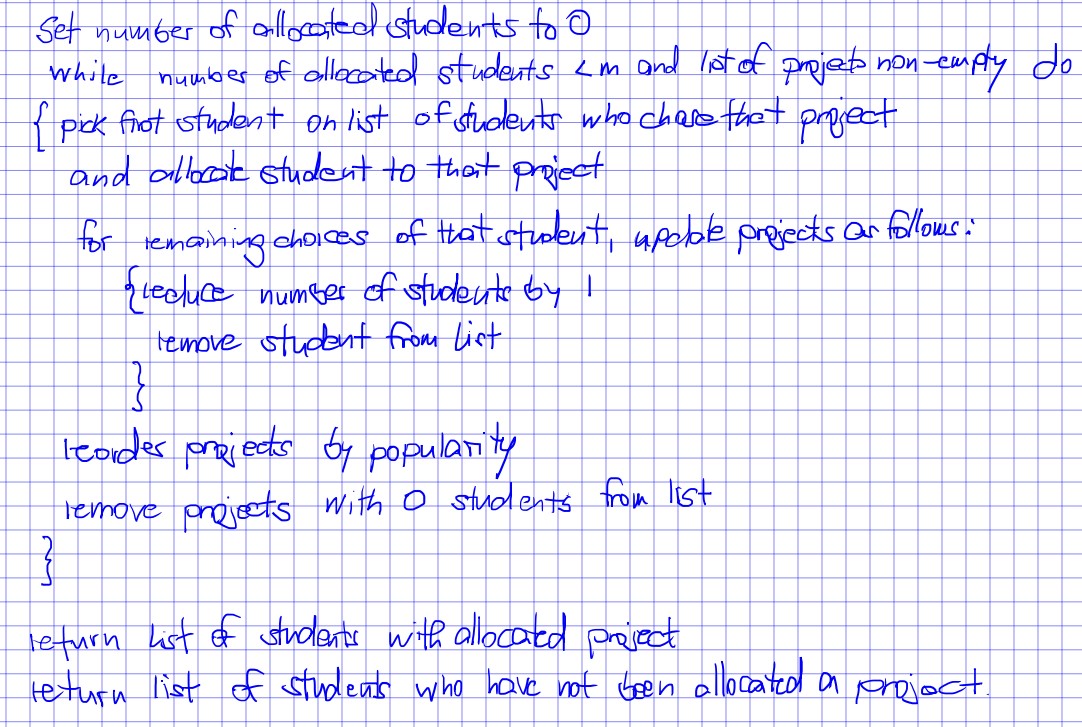 Set number of allocated students to 0
while number of allocated students < m and list of projects non-empty do
{ pick first student on list of students who chose that project
and allocate student to that project
for remaining choices of that student, update projects as follows:
{ reduce number of students by 1
remove student from list
}
reorder projects by popularity
remove projects with 0 students from list
}
return list of students with allocated project
return list of students who have not been allocated a project.